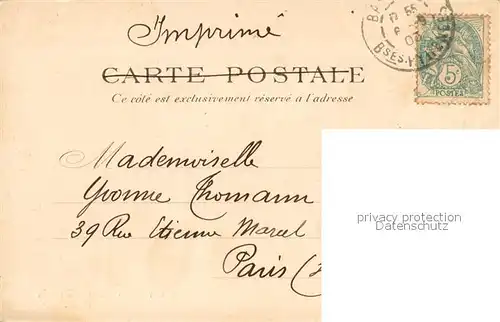 Imprimé
CARTE POSTALE
Ce côté est exclusivement réservé à l'adresse
5
POSTES
BSES-PYRÉNÉES
Mademoiselle
Yvonne Thomann
39 Rue Etienne Marcel
Paris (
privacy protection
Datenschutz